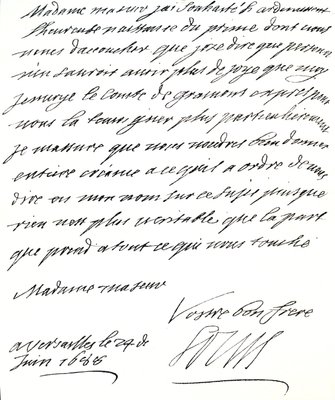 Madame ma sœur j'ai souhaité si ardemment
l'heureuse naissance du prince dont vous
venes d'accoucher que j'oze dire que personne
n'en sauroit avoir plus de joye que moy
j'envoye le Comte de gramont exprès pour
vous la temoigner plus particulierement
je m'assure que vous voudres bien donner
entiere créance a ce qu'il a ordre de vous
dire en mon nom sur ce sujet puisque
rien n'est plus veritable que la part
que prend a tout ce qui vous touche
Madame ma sœur
Vostre bon frere
Louis
a versailles le 24 de
Juin 1688